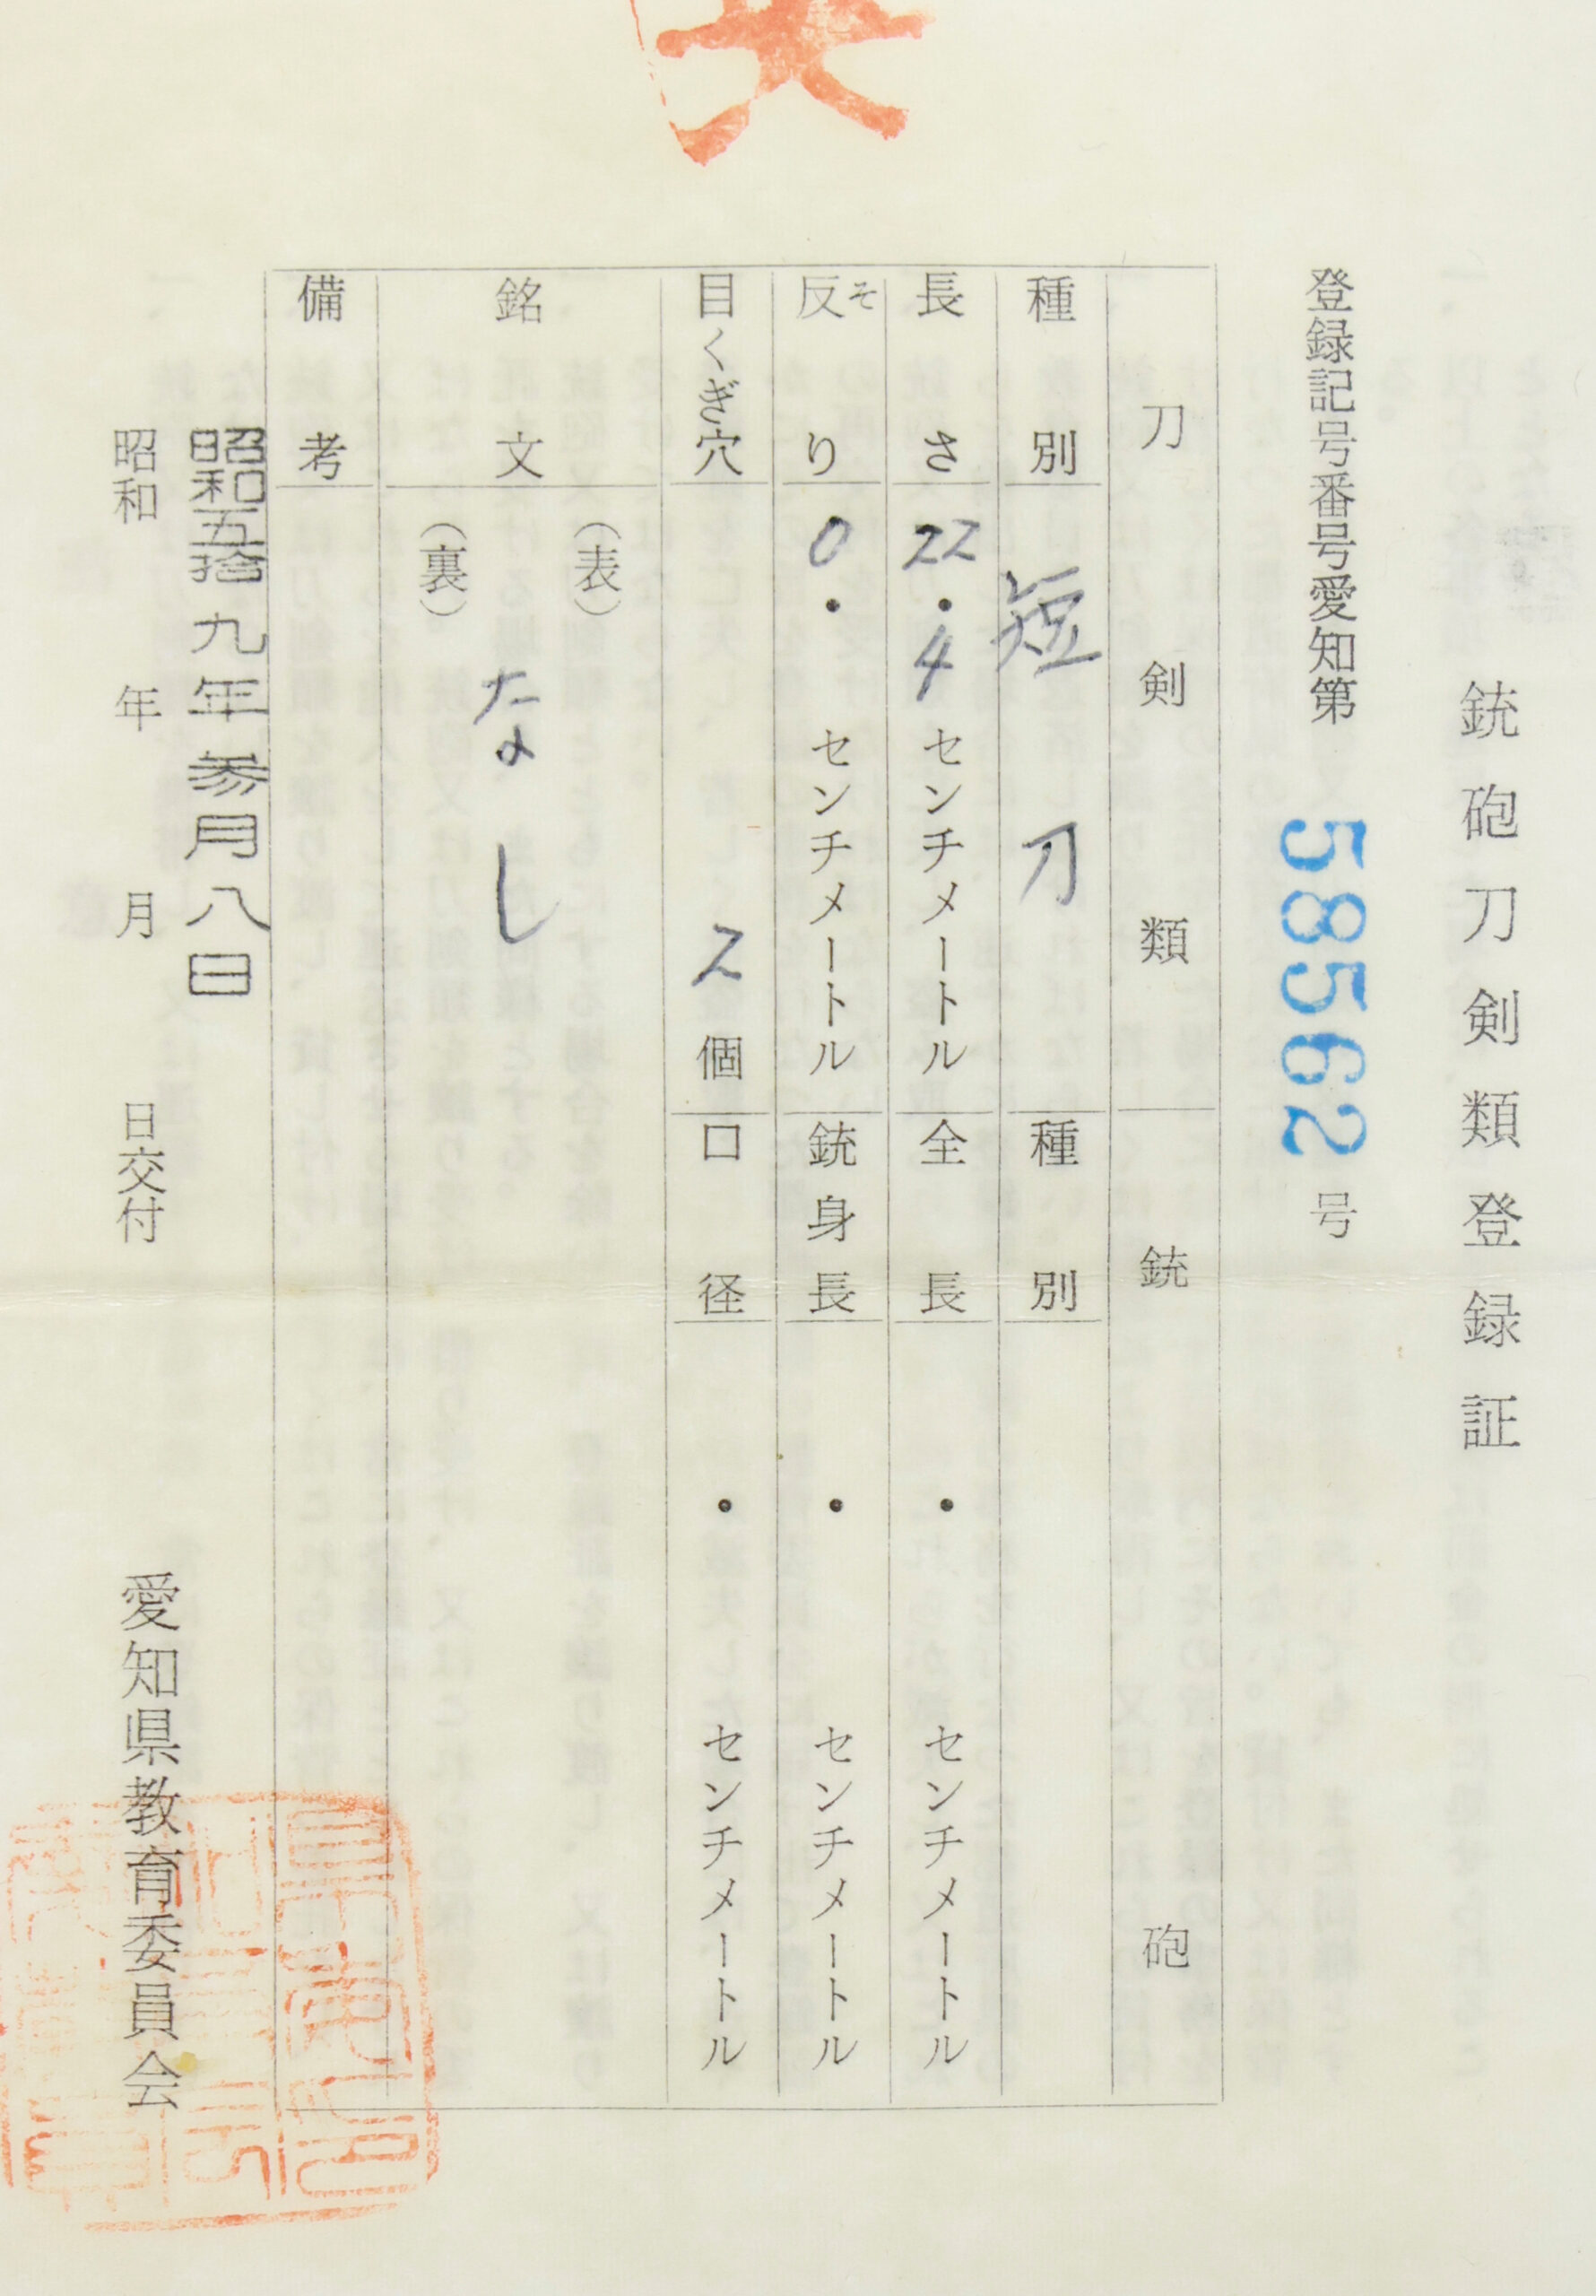 銃砲刀剣類登録証
登録記号番号愛知第 58562 号
刀剣類 銃砲
種別 短刀 種別
長さ 22.4 センチメートル 全長 ・ センチメートル
反り そ 0・ センチメートル 銃身長 ・ センチメートル
目くぎ穴 2個 口径 ・ センチメートル
銘文 (表) なし (裏)
備考
昭和五拾九年参月八日
昭和 年 月 日交付
愛知県教育委員会